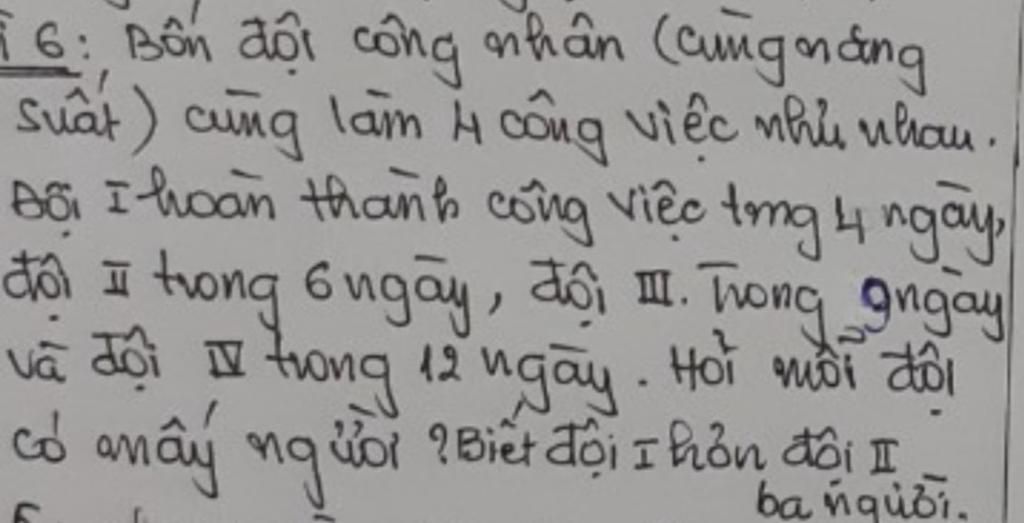 i 6: Bốn đội công nhân (cùng năng
suất) cùng làm 4 công việc như nhau.
Đội I hoàn thành công việc trng 4 ngày,
đội II trong 6 ngày, đội III. Trong 9 ngày
và đội IV trong 12 ngày. Hỏi mỗi đội
có mấy người? Biết đội I hơn đội II
ba người.